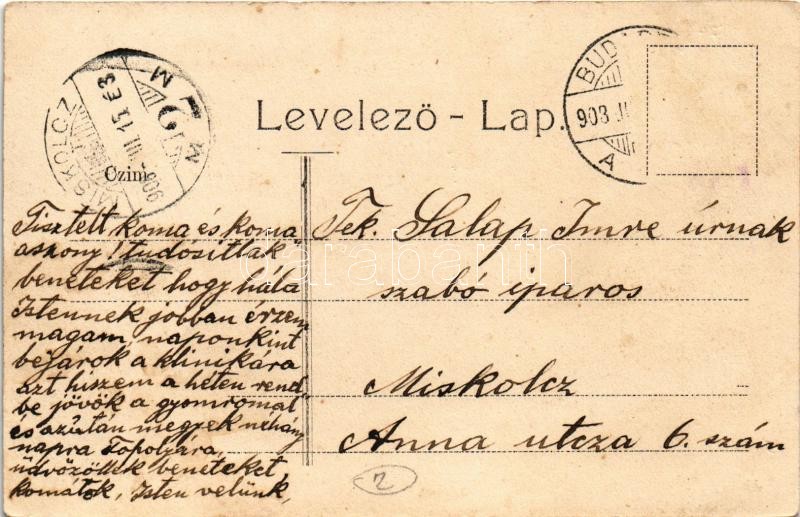 MISKOLCZ
M
BUDAPE
903 JU
A
Levelező - Lap.
Czim:
Tisztelt koma és koma
aszony! tudósitlak
beneteket hogy hála
Istennek jobban érzem
magam, naponkint
bejárok a klinikára
azt hiszem a héten rend
be jövök a gyomromal
és azután megyek néhány
napra Topolyára,
üdvözöllek beneteket
komátok, Isten velünk,
Tek. Salap Imre úrnak
szabó iparos
Miskolcz
Anna utcza 6. szám
2
darabanth